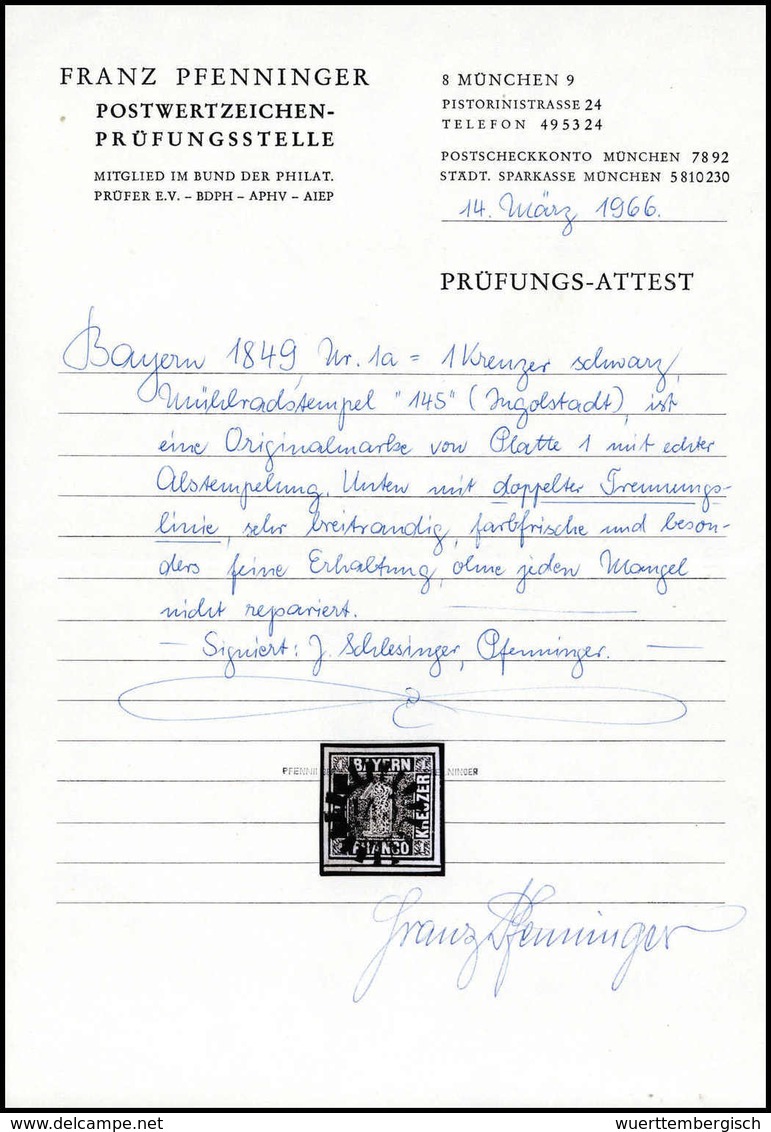 FRANZ PFENNINGER
POSTWERTZEICHEN-
PRÜFUNGSSTELLE
MITGLIED IM BUND DER PHILAT.
PRÜFER E.V. – BDPH – APHV – AIEP
8 MÜNCHEN 9
PISTORINISTRASSE 24
TELEFON 495324
POSTSCHECKKONTO MÜNCHEN 7892
STÄDT. SPARKASSE MÜNCHEN 5810230
14. März 1966.
PRÜFUNGS-ATTEST
Bayern 1849, Nr. 1a = 1 Kreuzer schwarz,
Mühlradstempel "145" (Ingolstadt), ist
eine Originalmarke von Platte 1 mit echter
Abstempelung. Unten mit doppelter Trennungs-
linie, sehr breitrandig, farbfrische und beson-
ders feine Erhaltung, ohne jeden Mangel
nicht repariert.
— Signiert: J. Schlesinger, Pfenninger. —
BAYERN
KREUZER
FRANCO
Franz Pfenninger
delcampe.net
wuerttembergisch